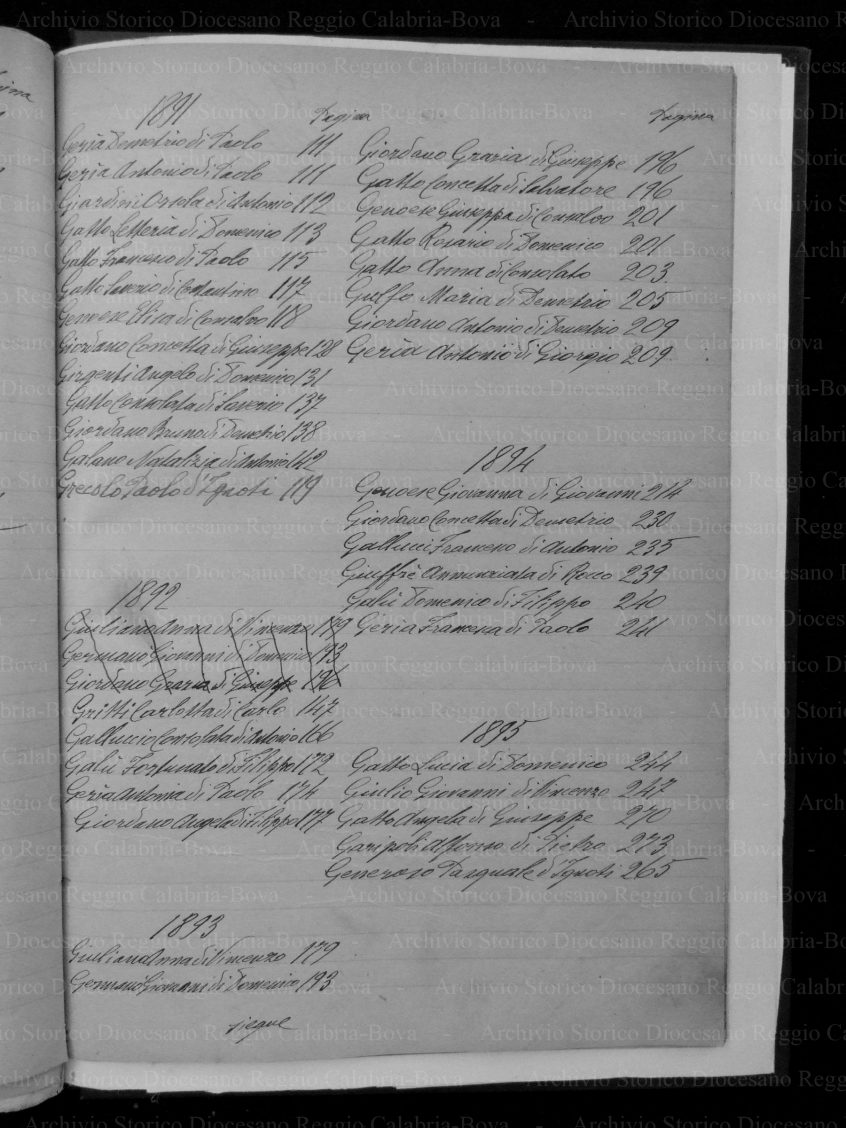 1891 Pagina
Geria Demetrio di Paolo 111
Geria Antonio di Paolo 111
Giardini Orsola di Antonio 112
Gatto Letteria di Domenico 113
Gatto Francesco di Paolo 115
Gatto Saverio di Costantino 117
Genoese Elisa di Consalvo 118
Giordano Concetta di Giuseppe 128
Girgenti Angelo di Domenico 131
Gatto Consolata di Saverio 137
Giordano Bruno di Demetrio 138
Galano Natalizia di Antonio 142
Grecolo Paolo d'Ignoti 119
1892
Giuliano Anna di Vincenzo 179
Germanò Giovanni di Domenico 193
Giordano Grazia di Giuseppe 196
Gritti Carlotta di Carlo 147
Galluccio Consolata di Antonio 166
Galù Fortunato di Filippo 172
Geria Antonia di Paolo 174
Giordano Angela di Filippo 177
1893
Giuliano Anna di Vincenzo 179
Germanò Giovanni di Domenico 193
siegue
Pagina
Giordano Grazia di Giuseppe 196
Gatto Concetta di Salvatore 196
Genoese Giuseppa di Consalvo 201
Gatto Rosario di Domenico 201
Gatto Anna di Consolato 203
Gulfo Maria di Demetrio 205
Giordano Antonio di Demetrio 209
Geria Antonio di Giorgio 209
1894
Genoese Giovanna di Giovanni 214
Giordano Concetta di Demetrio 230
Gallucci Francesco di Antonio 235
Giuffrè Annunziata di Rocco 239
Galù Domenico di Filippo 240
Geria Francesca di Paolo 241
1895
Gatto Lucia di Domenico 244
Giulio Giovanni di Vincenzo 247
Gatto Angela di Giuseppe 270
Garipoli Alfonso di Pietro 273
Generoso Pasquale d'Ignoti 265
Archivio Storico Diocesano Reggio Calabria-Bova